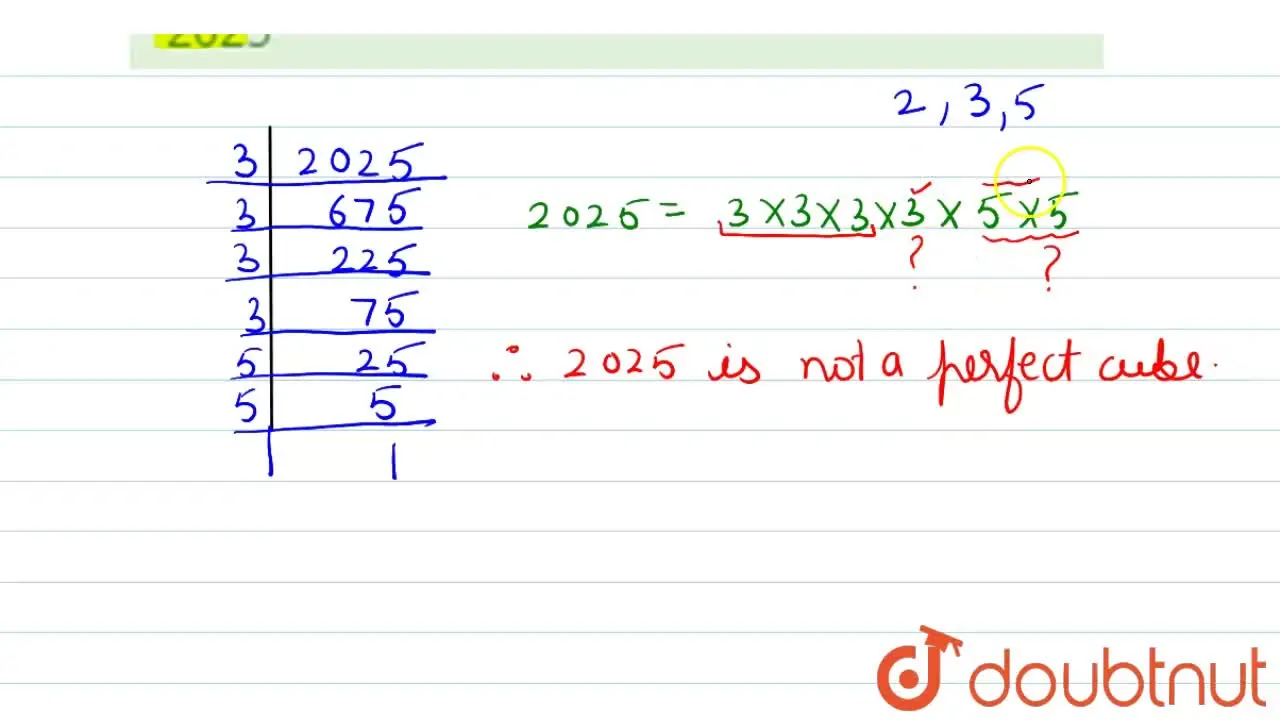 2025
2, 3, 5
3 2025
3 675
3 225
3 75
5 25
5 5
1
2025 = 3 × 3 × 3 × 3 × 5 × 5
? ?
∴ 2025 is not a perfect cube.
doubtnut